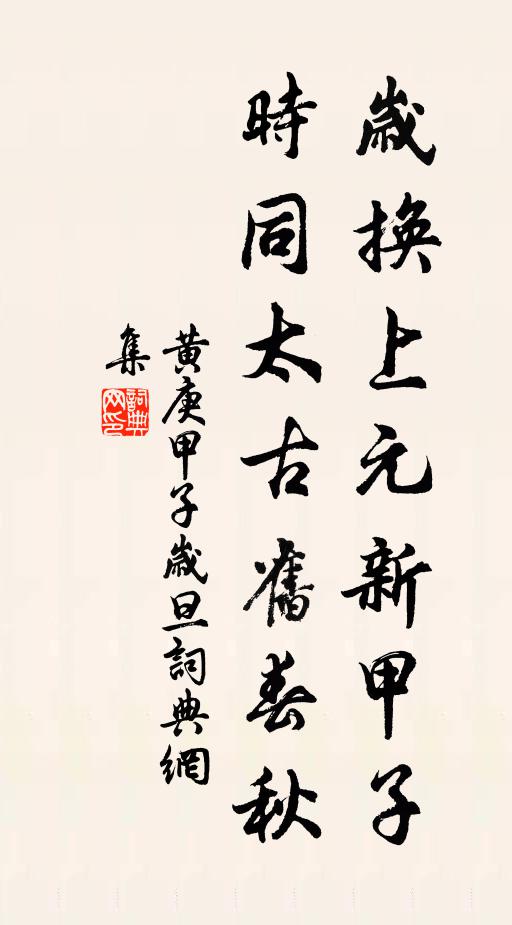 歲換上元新甲子
時同太古舊春秋
黃庚甲子歲旦詞典網
集
詞典
网印